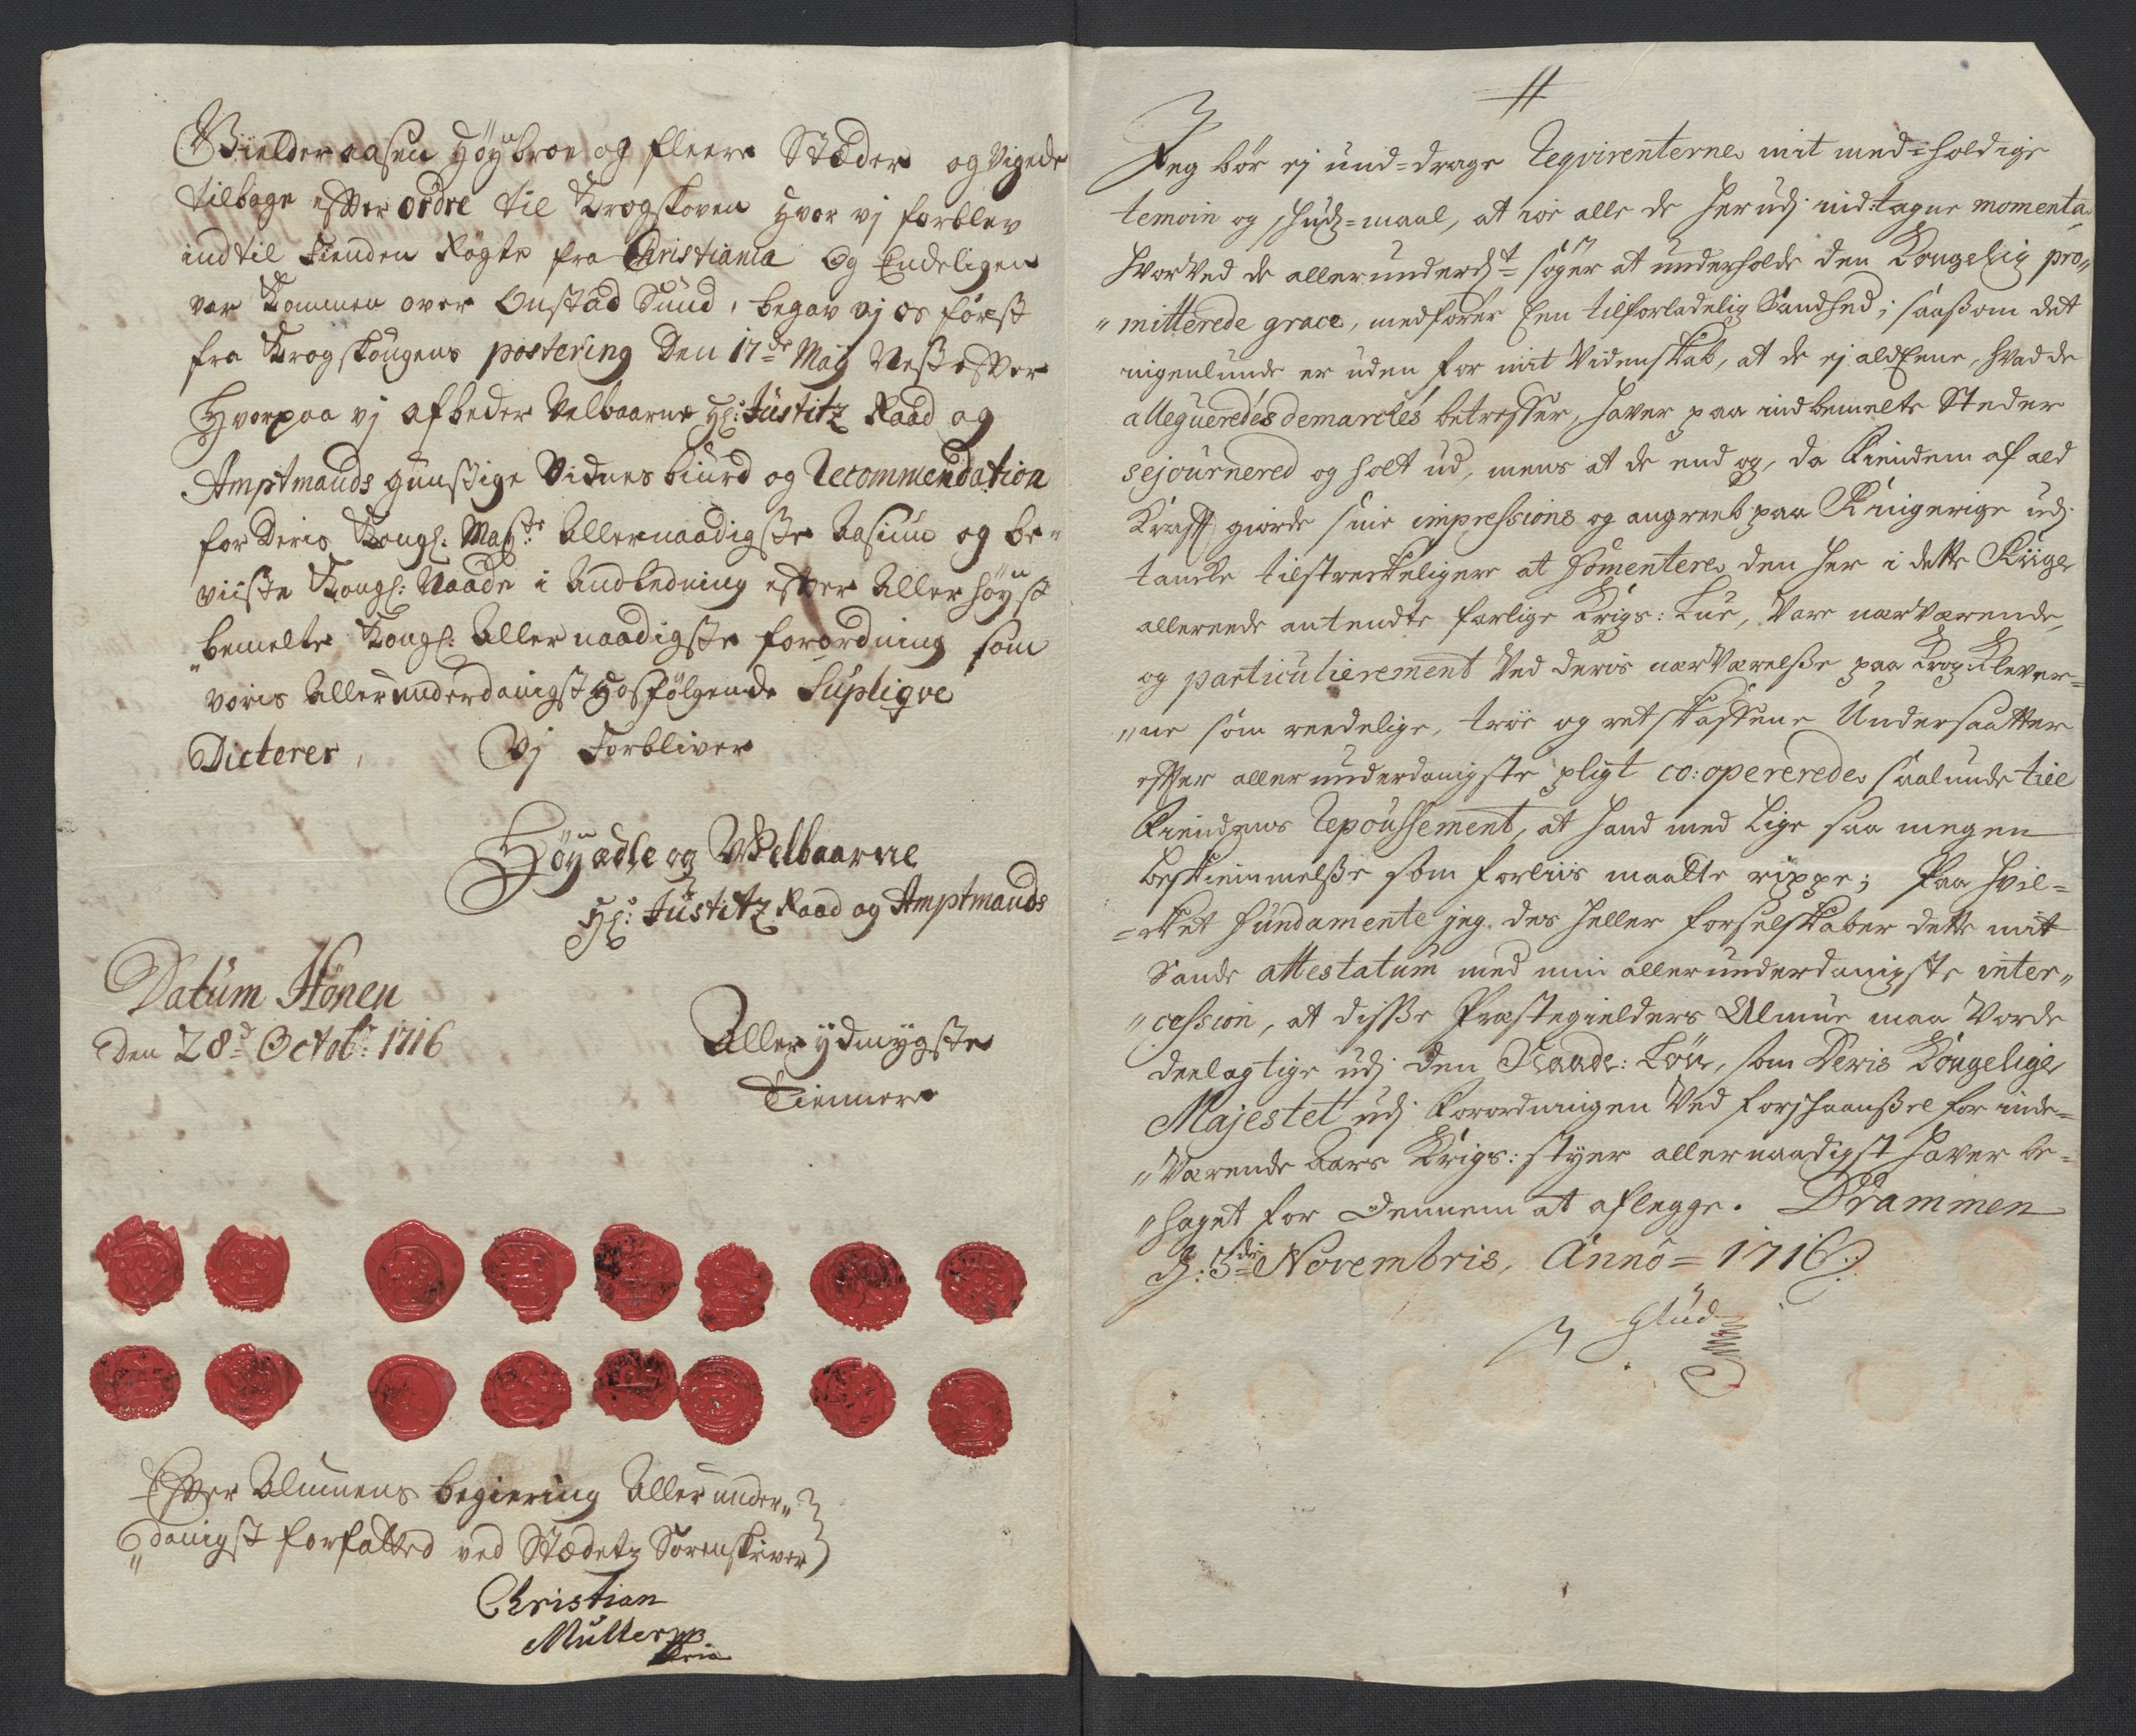 Gielderaasen Höybroe og fleere Stæder og Vigede
tilbage efter ordre til Krogskoven hvor vj forblev
indtil Fienden Rögte fra Christiania Og Endeligen
var kommen over Onstad Sund, begav vj os först
fra Krogskougens postering Den 17de Maÿ Nest efter
Hvorpaa vj afbeder Velbaarne Hr: Justitz Raad og
Amptmands gunstige Vidnesbiurd og Recommendation
for Deris Kongl: Maÿts Allernaadigste Aasiun og be-
viiste Kongl: Naade i Andledning efter Aller höyst
"bemelte Kongl: Allernaadigste forordning som
voris Allerunderdanigst Hosfölgende Suplique
Dicterer, Vj Forbliver
Höyædle og Welbaarne
Hr: Justitz Raad og Amptmands
Datum Hönen
Den 28d Octobr: 1716
Aller ydmygste
Tiennere
Efter Almuens begiering Allerunder"
"danigst forfatted ved Stædets Sorenskriver
Christian
Muller mp
pria
Jeg bör ej und-drage Reqvirenterne mit med-holdige
temoin og skuds-maal, at ioe alle de herudj ind-tagne momenta
hvorved de allerunderdt söger at underholde den Kongelig pro"
"mitterede grace, medförer Een tilforladelig Sandhed; saasom det
ingenlunde er uden for mit Videnskab, at de ej aldEene, hvad de
allegueredes demarches betreffer, haver paa indbemelte Steder
sejournered og holt ud, mens at de end og, da Fiendem af ald
Krafft giorde sine impressions og angreeb paa Ringerige udj
tancke tilstreckeligere at fomentere den her i dette Riige
allereede antendte farlige Krigs: Lue, Vare nærværende,
og particulierement Ved deris nærværelsse paa Krog Klever-
"ne som reedelige, troe og retskaffene Undersaatter
efter allerunderdanigste pligt co:opererede saalunde till
Fiendens Repoussement, at hand med Lige saa megen
beskiemmelsse som forliis maatte rippe; Paa hvil-
-cket Fundamente jeg des heller forselskaber dette mit
Sande attestatum med min allerunderdanigste inter"
"cession, at disse Præstegielders Almue maa Vorde
deelagtige udj den Naade: Lön, som Deris Kongelige
Majestet udj Forordningen Ved forskaansel for inde-
"værende Aars Krigs: styer allernaadigst haver be-
"haget for Dennem at aflegge. Drammen
d: 5de Novembris, Anno = 1716
J Glud